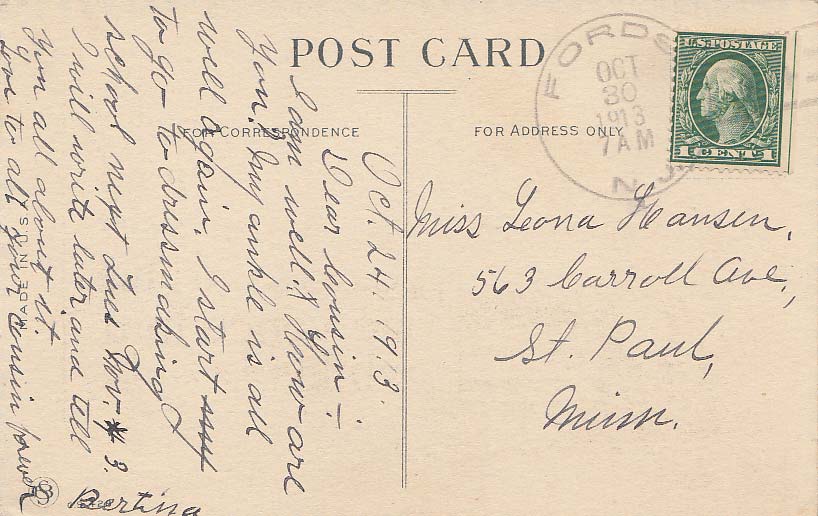 POST CARD
FOR CORRESPONDENCE
FOR ADDRESS ONLY
FORDS
OCT
30
1913
7 AM
N.J.
U.S. POSTAGE
1 CENT 1
Oct. 24. 1913.
Dear Cousin:-
I am well. How are
you? My ankle is all
well again. I start
to go to dressmaking
school next Tues Nov. 3.
I will write later and tell
you all about it.
Love to all your cousin forever
Bertina
MADE IN U.S.A.
Miss Leona Hansen,
563 Carroll Ave,
St. Paul,
Minn.